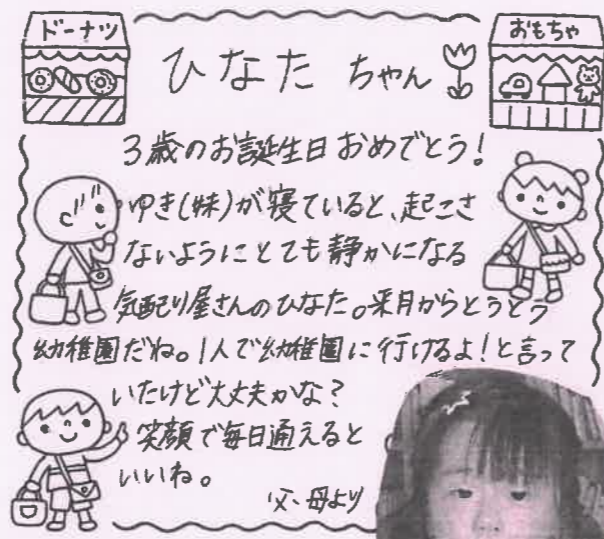 ドーナツ
おもちゃ
ひなた ちゃん
3歳のお誕生日おめでとう!
ゆき(妹)が寝ていると、起こさ
ないようにとても静かになる
気配り屋さんのひなた。来月からとうとう
幼稚園だね。1人で幼稚園に行けるよ!と言って
いたけど大丈夫かな?
笑顔で毎日通えると
いいね。
父、母より